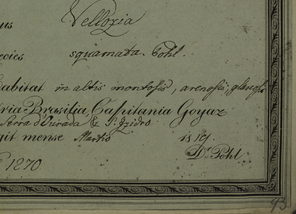 us Vellozia
ecies squamata. Pohl.
abitat in altis montosis, arenosis,
ria Brasilia Capitania Goyaz
Serra d'Ourada S. Izidro
it mense Martio 18
Dr. Pohl.
1270